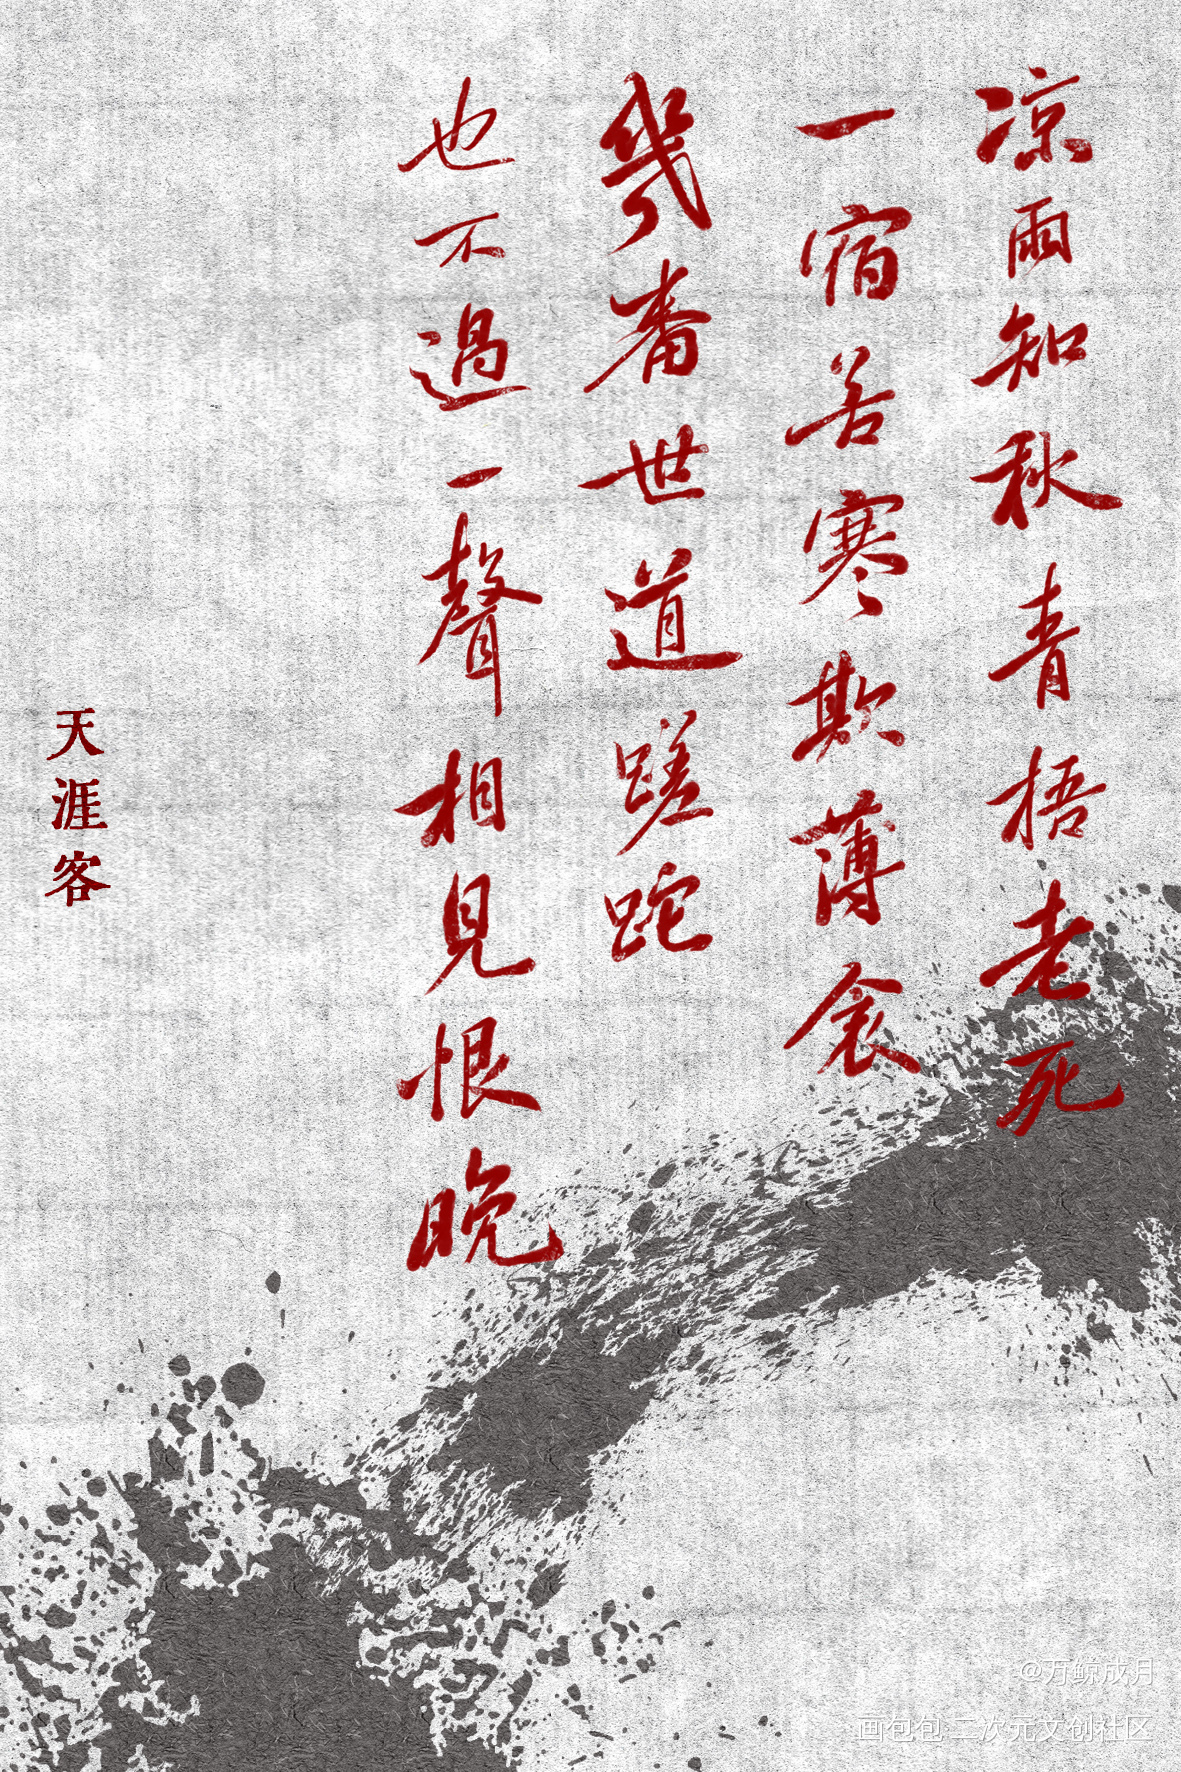 凉雨知秋青梧老死
一宿苦寒欺薄衾
幾番世道蹉跎
也不過一聲相見恨晚
天涯客
@万鲸成月
画包包·二次元文创社区